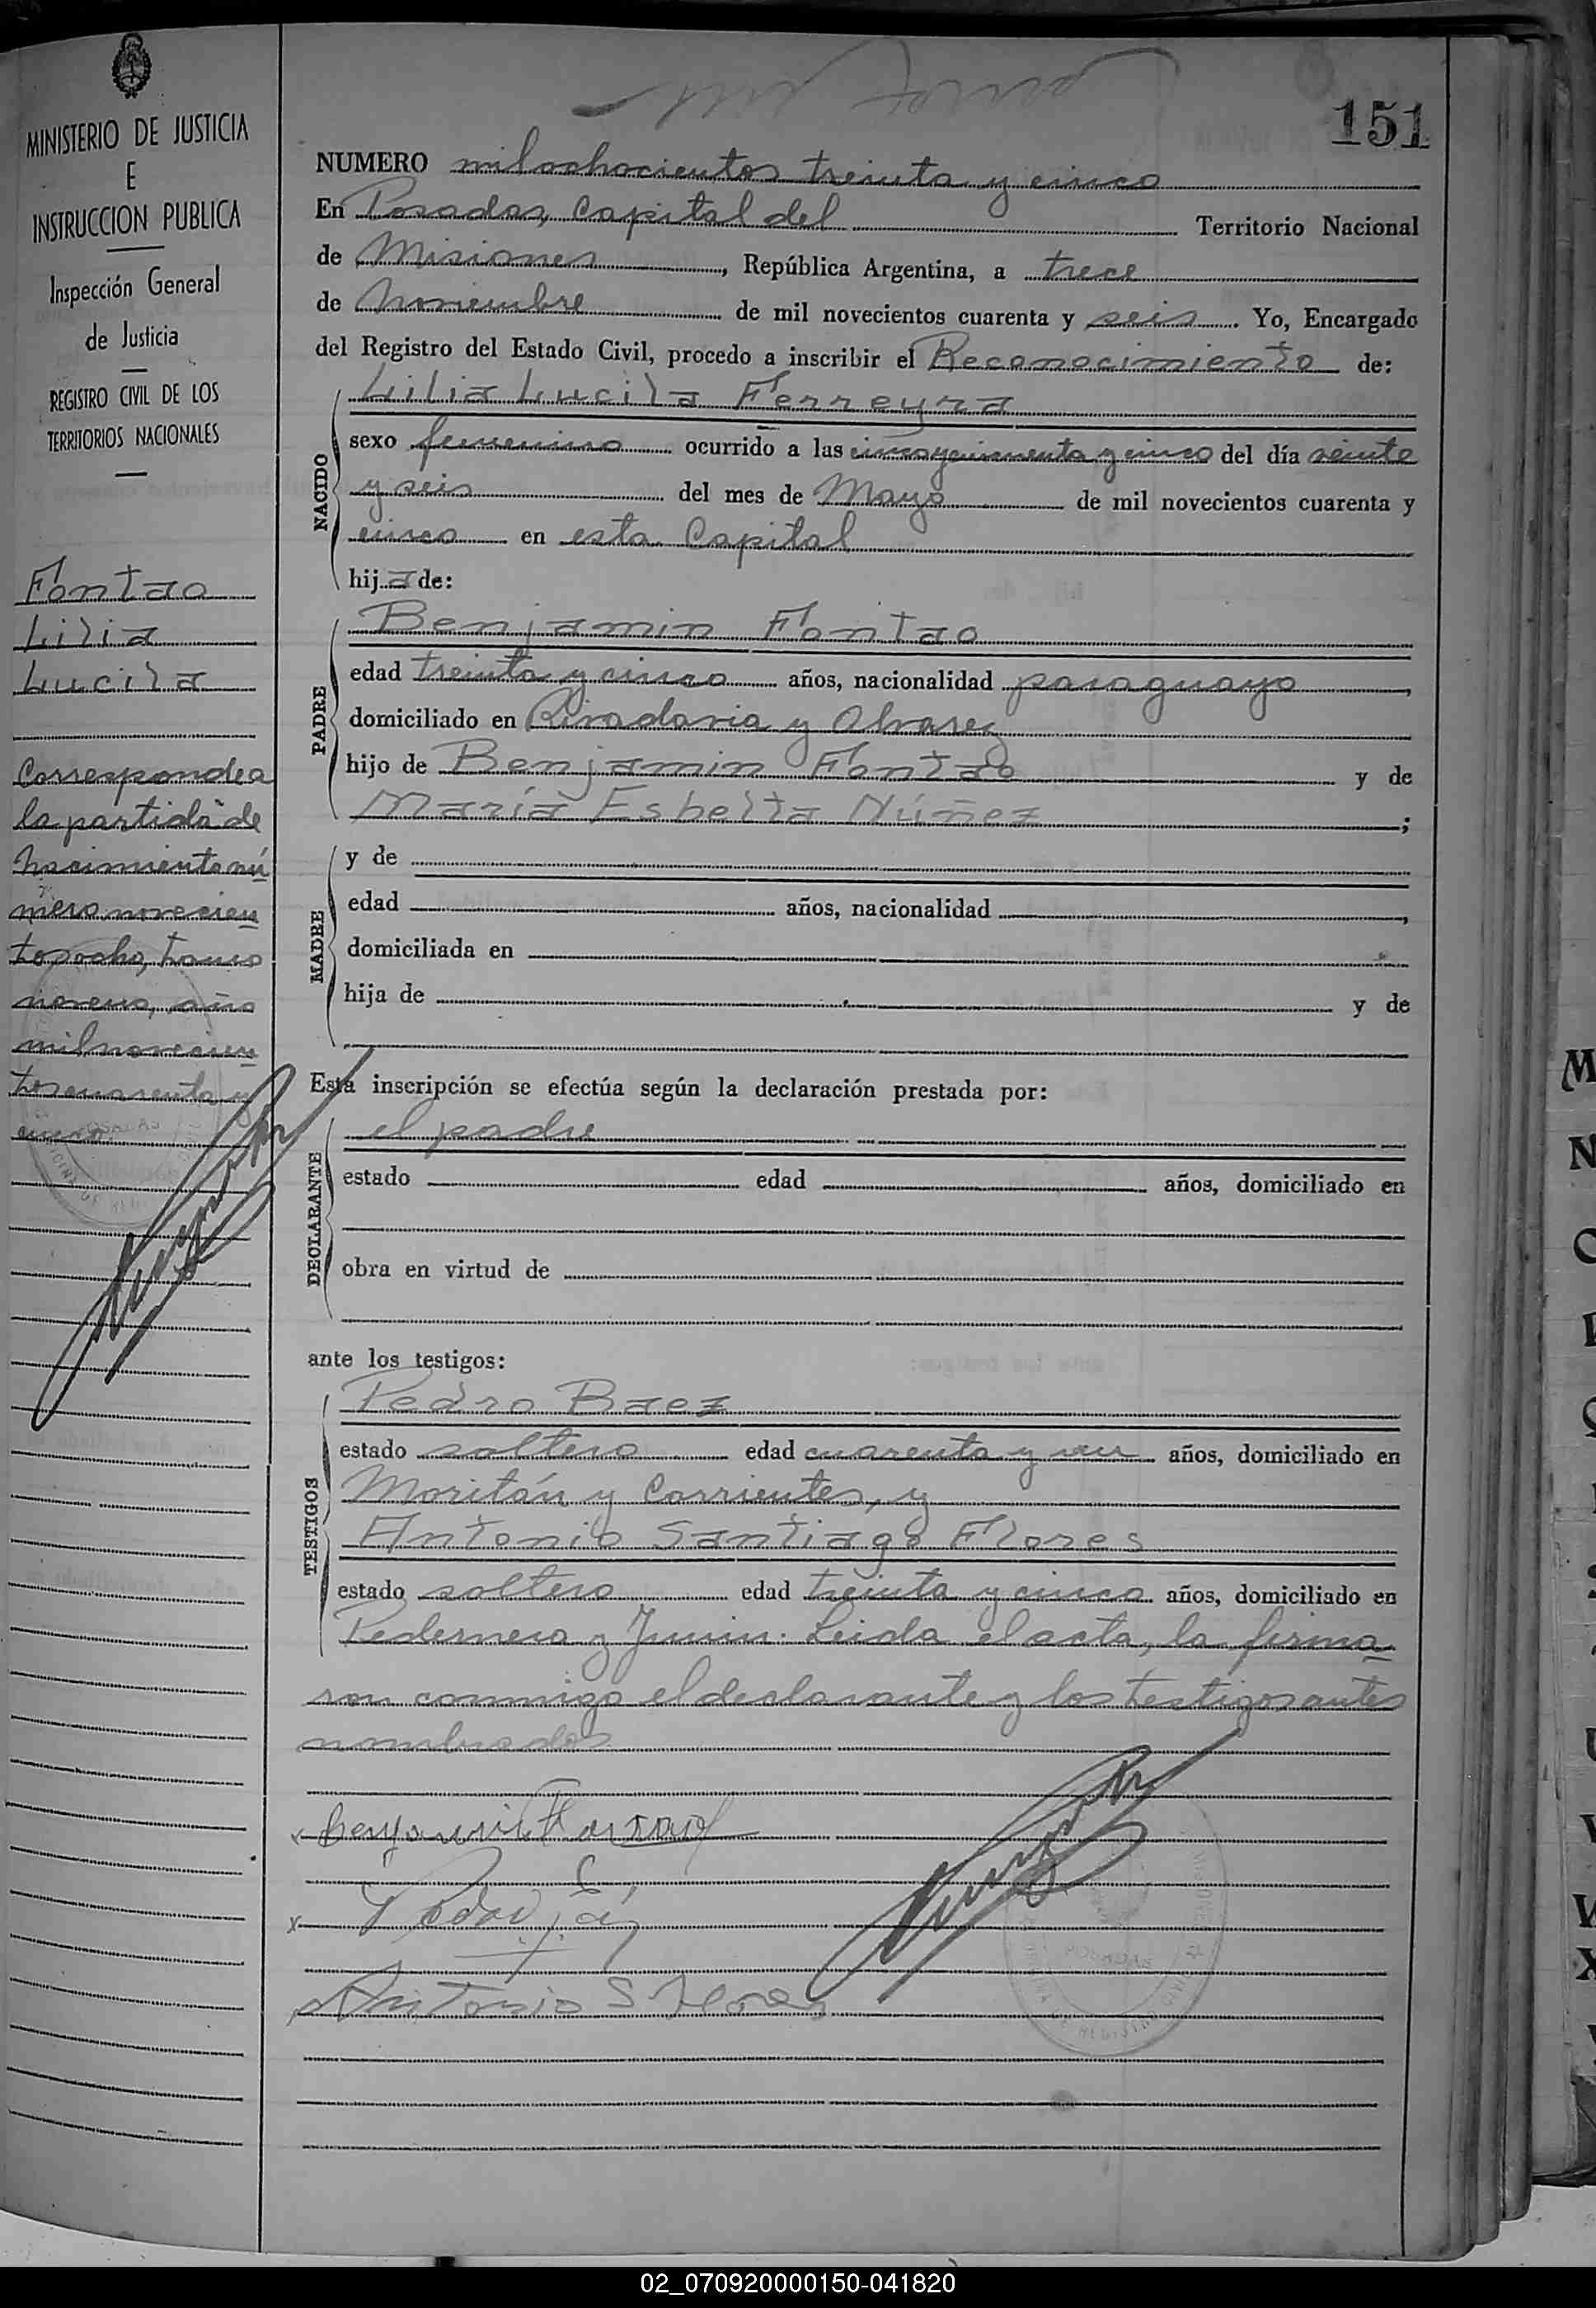 151
MINISTERIO DE JUSTICIA
E
INSTRUCCION PUBLICA
Inspección General
de Justicia
REGISTRO CIVIL DE LOS
TERRITORIOS NACIONALES
Fontao
Lilia
Lucila
Corresponde a
la partida de
nacimiento nú
mero novecien
tos ocho, tomo
noveno, año
mil novecien
tos cuarenta y
cinco.
NUMERO mil ochocientos treinta y cinco
En Posadas, Capital del Territorio Nacional
de Misiones, República Argentina, a trece
de noviembre de mil novecientos cuarenta y seis. Yo, Encargado
del Registro del Estado Civil, procedo a inscribir el Reconocimiento de:
NACIDO
Lilia Lucila Ferreyra
sexo femenino ocurrido a las cinco y cincuenta y cinco del día veinte
y seis del mes de Mayo de mil novecientos cuarenta y
cinco en esta Capital
hija de:
PADRE
Benjamin Fontao
edad treinta y cinco años, nacionalidad paraguayo,
domiciliado en Rivadavia y Alvarez
hijo de Benjamin Fontao y de
María Esbelta Núñez;
MADRE
y de
edad años, nacionalidad,
domiciliada en
hija de y de
Esta inscripción se efectúa según la declaración prestada por:
DECLARANTE
el padre
estado edad años, domiciliado en
obra en virtud de
ante los testigos:
TESTIGOS
Pedro Baez
estado soltero edad cuarenta y un años, domiciliado en
Moritán y Corrientes, y
Antonio Santiago Flores
estado soltero edad treinta y cinco años, domiciliado en
Pedernera y Junin. Leida el acta, la firma
ron conmigo el declarante y los testigos antes
nombrados
Benjamin Fontao
Antonio S Flores
POSADAS
02_070920000150-041820